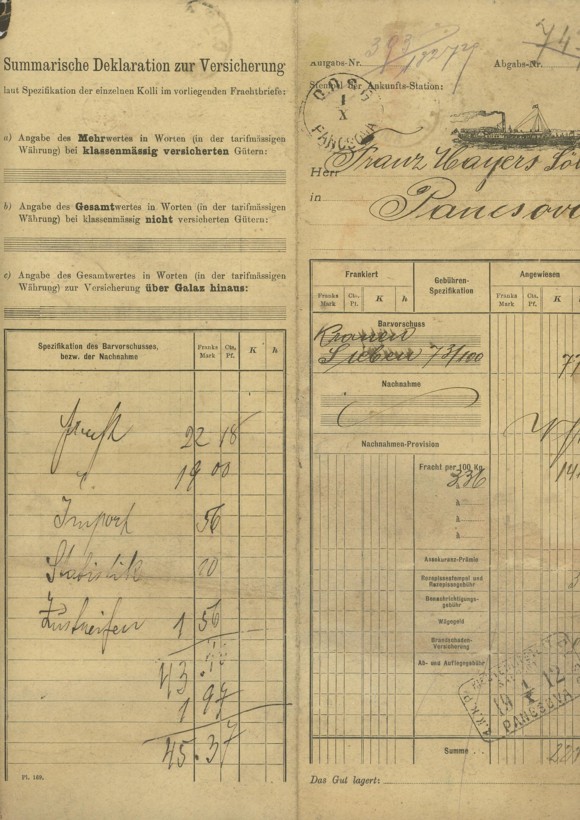 Summarische Deklaration zur Versicherung
laut Spezifikation der einzelnen Kolli im vorliegenden Frachtbriefe:
a) Angabe des Mehrwertes in Worten (in der tarifmässigen
Währung) bei klassenmässig versicherten Gütern:
b) Angabe des Gesamtwertes in Worten (in der tarifmässigen
Währung) bei klassenmässig nicht versicherten Gütern:
c) Angabe des Gesamtwertes in Worten (in der tarifmässigen
Währung) zur Versicherung über Galaz hinaus:
Spezifikation des Barvorschusses,
bezw. der Nachnahme
Franks
Mark
Cts.
Pf.
K
h
22 18
19 00
Import 56
Statistik 10
1 56
43
1 97
45.37
Pl. 169.
Aufgabs-Nr.
Abgabs-Nr.
Stempel der Ankunfts-Station:
PANCSOVA
Herr
Franz Mayers
in
Pancsova
Frankiert
Gebühren-
Spezifikation
Angewiesen
Franks
Mark
Cts.
Pf.
K
h
Franks
Mark
Cts.
Pf.
K
Barvorschuss
Kronen
Sieben 73/100
Nachnahme
Nachnahmen-Provision
Fracht per 100 Kg.
336
à
à
à
Assekuranz-Prämie
Rezepissestempel und
Rezepissegebühr
Benachrichtigungs-
gebühr
Wägegeld
Brandschaden-
Versicherung
Ab- und Auflegegebühr
19 1 X 12
PANCSOVA
Summe
Das Gut lagert: